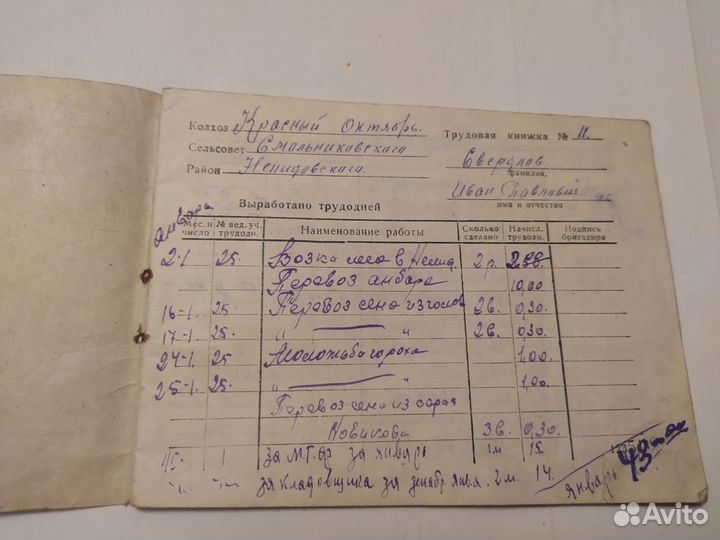 Колхоз Красный Октябрь. Трудовая книжка № 11.
Сельсовет Смольниковского Свердлов
Район Нелидовского. фамилия,
Иван Павлович
имя и отчество
Выработано трудодней
январь
Мес. и число № вед. уч. трудодн. Наименование работы Сколько сделано Начисл. трудодн. Подпись бригадира
2-1 25. Возка в Нелид. 2р.
Перевоз амбара 10,00
16-1. 25 Перевоз сена 2в. 0,30.
17-1. 25 " — " 2в. 0,30.
24-1. 25 Молотьба гороха 1,00.
25-1. 25. " — " 1,00.
Перевоз сена из сарая
Новикова 3в. 0,30.
1 за МТФ за январь 1м 15
за кладовщика за декабр янва. 2м. 14.
январь 43
Avito